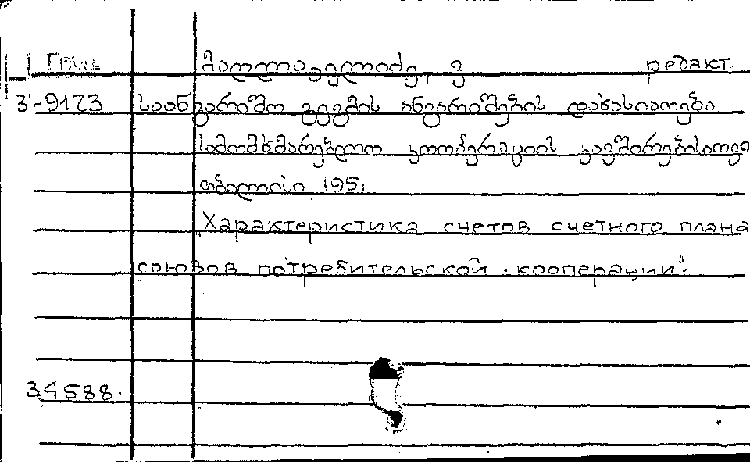 редакт.
3-9173 საანგარიშო გეგმის ანგარიშების დახასიათება
სამომხმარებლო კოოპერაციის კავშირებისათვის
თბილისი 195
Характеристика счетов счетного плана
союзов потребительской кооперации".
34588.